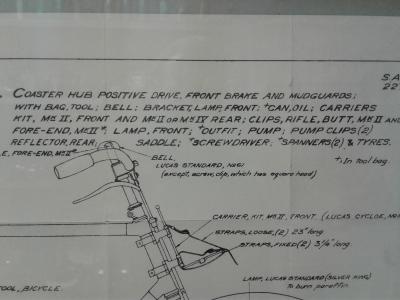 S.A
22
COASTER HUB POSITIVE DRIVE, FRONT BRAKE AND MUDGUARDS;
WITH BAG, TOOL; BELL; BRACKET, LAMP, FRONT; †CAN, OIL; CARRIERS
KIT, Mk II, FRONT AND Mk II OR Mk IV REAR; CLIPS, RIFLE, BUTT, Mk II AND
FORE-END, Mk II*; LAMP, FRONT; †OUTFIT; PUMP; PUMP CLIPS (2)
REFLECTOR, REAR; SADDLE; †SCREWDRIVER; †SPANNERS (2) & TYRES.
E, FORE-END, Mk II*
†, In tool bag.
BELL,
LUCAS STANDARD, No 61
(except, screw, clip, which has square head)
CARRIER, KIT, Mk II, FRONT. (LUCAS CYCLOE, No
STRAPS, LOOSE, (2) 23" long
STRAPS, FIXED (2) 3/4" long
LAMP, LUCAS STANDARD (SILVER KING)
To burn paraffin
TOOL, BICYCLE.